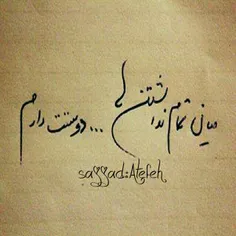 میان تمام نداشتن ها ... دوستت دارم
sajjad:Atefeh